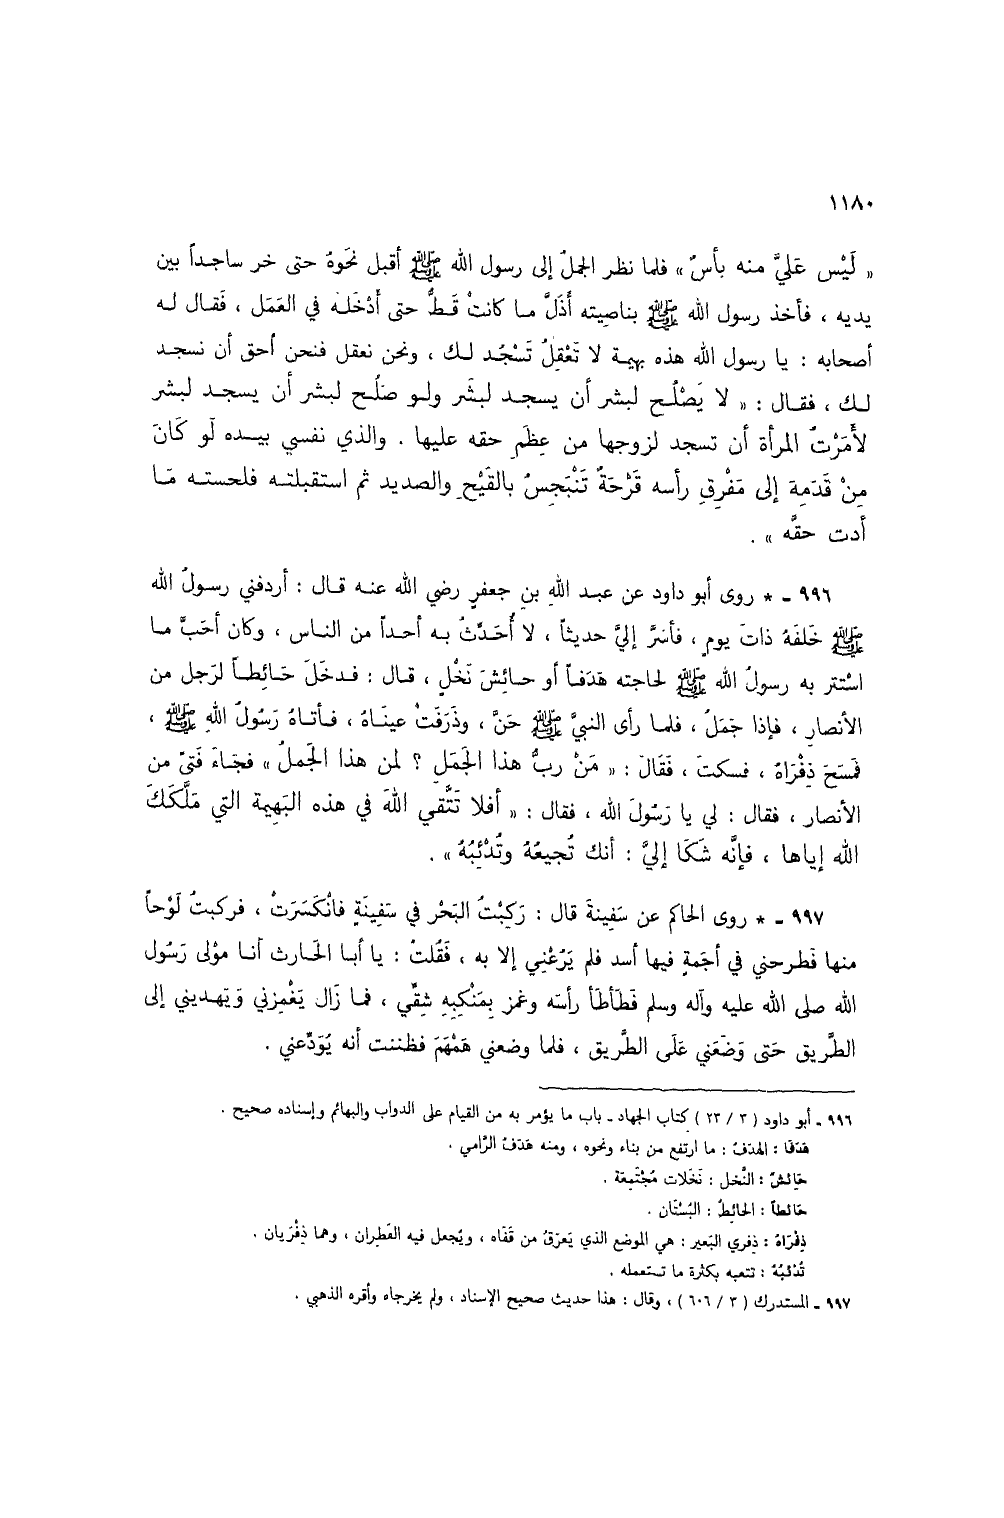 ١١٨٠
« لَيْس عَليَّ منه بأسٌ » فلما نظر الجملُ إلى رسول الله ﷺ أقبل نحَوهُ حتى خر ساجـداً بين
يديه ، فأخذ رسول الله ﷺ بناصيته أَذَلَّ مـا كانتْ قَـطُّ حتى أَدْخَلَـه في العَمَل ، فَقـال لـه
أصحابه : يا رسول الله هذه بهيمة لا تَعْقِلُ تَسْجُد لـك ، ونحن نعقل فنحن أحق أن نسجـد
لـك ، فقـال : « لا يَصْلُـح لبشر أن يسجـد لبشَر ولـو صَلُـح لبشر أن يسجـد لبشر
لأَمَرْتُ المرأة أن تسجد لزوجها من عِظَمِ حقه عليها . والذي نفسي بيـده لَو كَانَ
مِنْ قَدَمِهِ إلى مَفْرِقِ رأسه قَرْحَةٌ تَنْبَجِسُ بالقَيْحِ والصديد ثم استقبلتـه فلحستـه مَـا
أدت حقَّه » .
٩٩٦ ـ * روى أبو داود عن عبـد اللهِ بنِ جعفرٍ رضي الله عنـه قـال : أردفني رسـولُ الله
ﷺ خَلفَهُ ذاتَ يومٍ ، فأسَرَّ إليَّ حديثاً ، لا أُحَدِّثُ بـه أحـداً من النـاس ، وكان أحَبَّ مـا
اسْتتر به رسولُ الله ﷺ لحاجته هَدَفـاً أو حـائِشَ نَخْلٍ ، قـال : فـدخَلَ حَـائِطـاً لرَجل من
الأنصارِ ، فإذا جَمَلٌ ، فلمـا رأى النبيَّ ﷺ حَنَّ ، وذَرَفَتْ عينَـاهُ ، فـأتـاهُ رَسُولُ اللهِ ﷺ ،
فَمسَحَ ذِفْرَاهُ ، فسكتَ ، فَقَالَ : « مَنْ ربُّ هذا الجَمَلِ ؟ لمن هذا الجَملُ » فجَـاءَ فَتىً من
الأنصار ، فقال : لي يا رَسُولَ الله ، فقال : « أفلا تَتَّقي اللهَ في هذه البَهِيمة التي مَلَّكَكَ
الله إياها ، فإنَّه شَكَا إليَّ : أنك تُجيعُهُ وتُدْئِبُهُ » .
٩٩٧ ـ * روى الحاكم عن سَفِينةَ قال : رَكِبْتُ البَحْر في سَفِينَةٍ فانْكَسَرَتْ ، فركبتُ لَوْحاً
منها فَطرحني في أجَمَةٍ فيها أسد فلم يَرُعْني إلا به ، فَقُلتُ : يا أبـا الحَـارث أنـا موْلى رَسُول
الله صلى الله عليه وآله وسلم فَطَأطَأ رأسَه وغمز بِمَنْكِبِهِ شِقِّي ، فمـا زَال يَغْمِزني وَيَهـديني إلى
الطَّريق حَتى وَضَعَني عَلَى الطَّريق ، فلما وضعني هَمْهَمَ فظننت أنه يُوَدِّعني .
٩٩٦ ـ أبو داود ( ٣ / ٢٣ ) كتاب الجهاد ـ باب ما يؤمر به من القيام على الدواب والبهائم وإسناده صحيح .
هَدَفاً : الهدَفُ : ما ارتفع من بناء ونحوه ، ومنه هَدَفُ الرَّامي .
حَائشُ : النَّخل : نَخَلات مُجْتَمِعَة .
حَائطاً : الحَائِطُ : البُسْتَان .
ذِفْرَاهُ : ذِفرى البَعير : هي الموضع الذي يَعرَقُ من قَفَاه ، ويُجعل فيه القَطِران ، وهما ذِفْرَيان .
تُدْئبُهُ : تتعبه بكثرة ما تستعمله .
٩٩٧ ـ المستدرك ( ٣ / ٦٠٦ ) ، وقال : هذا حديث صحيح الإسناد ، ولم يخرجاه وأقره الذهبي .